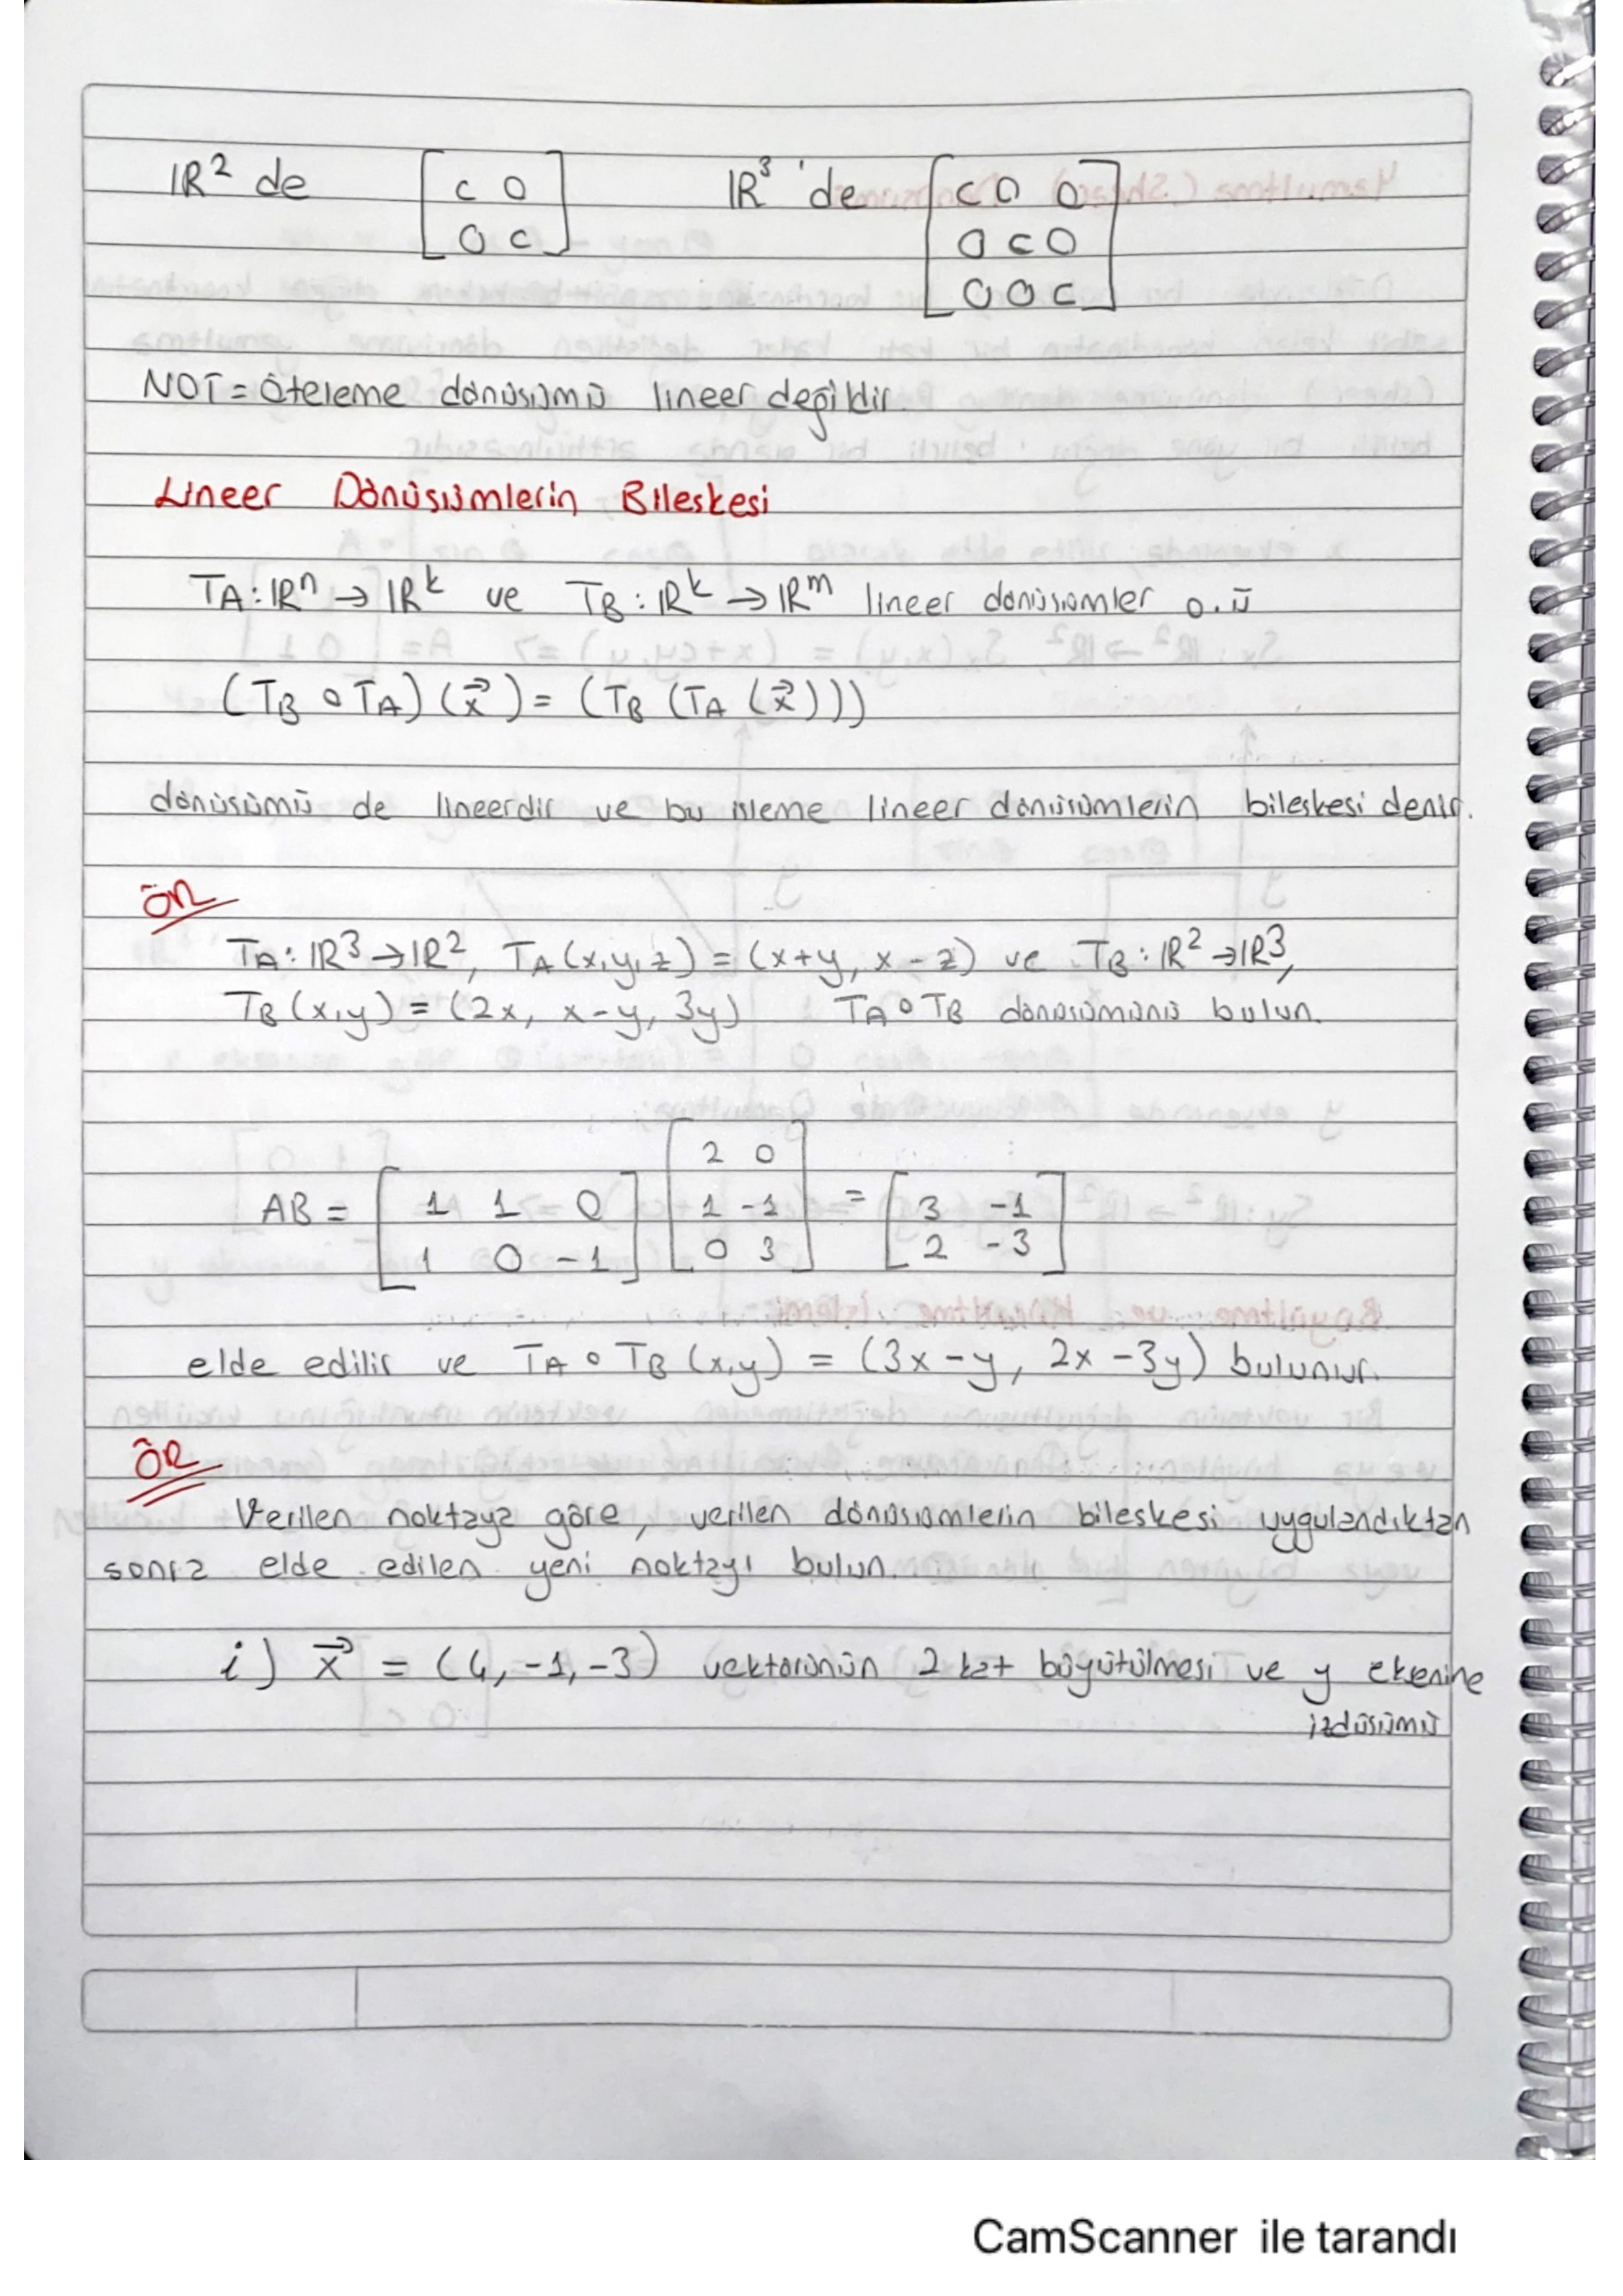 IR² de [c 0 0 c] IR³ 'de [c 0 0 0 c 0 0 0 c]
NOT = Öteleme dönüşümü lineer değildir.
Lineer Dönüşümlerin Bileskesi
TA : IRⁿ → IRᵏ ve TB : IRᵏ → IRᵐ lineer dönüsümler o.ü
(TB o TA) (x⃗) = (TB (TA (x⃗)))
dönüsümü de lineerdir ve bu isleme lineer dönüsümlerin bileskesi denir.
ÖR
TA : IR³ → IR², TA (x,y,z) = (x+y, x-z) ve TB : IR² → IR³,
TB (x,y) = (2x, x-y, 3y) TA o TB dönüsümünü bulun.
AB = [1 1 0 1 0 -1] [2 0 1 -1 0 3] = [3 -1 2 -3]
elde edilir ve TA o TB (x,y) = (3x-y, 2x-3y) bulunur.
ÖR
Verilen noktaya göre, verilen dönüsümlerin bileskesi uygulandıktan
sonra elde edilen yeni noktayı bulun.
i) x⃗ = (4, -1, -3) vektörünün 2 kat büyütülmesi ve y eksenine
izdüsümü
CamScanner ile tarandı